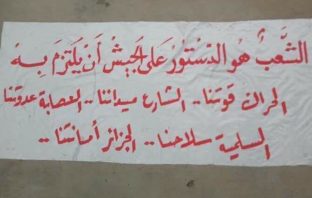 الشَّعبُ هُوَ الدّسْتُورُ عَلَى الجَيْشُ أَنْ يَلتَزِمَ بِهْ
الحراك قوتنا.. الشارع ميداننا.. العصابة عدوتنا
السلمية سلاحنا.. الجزائر أمانتنا..